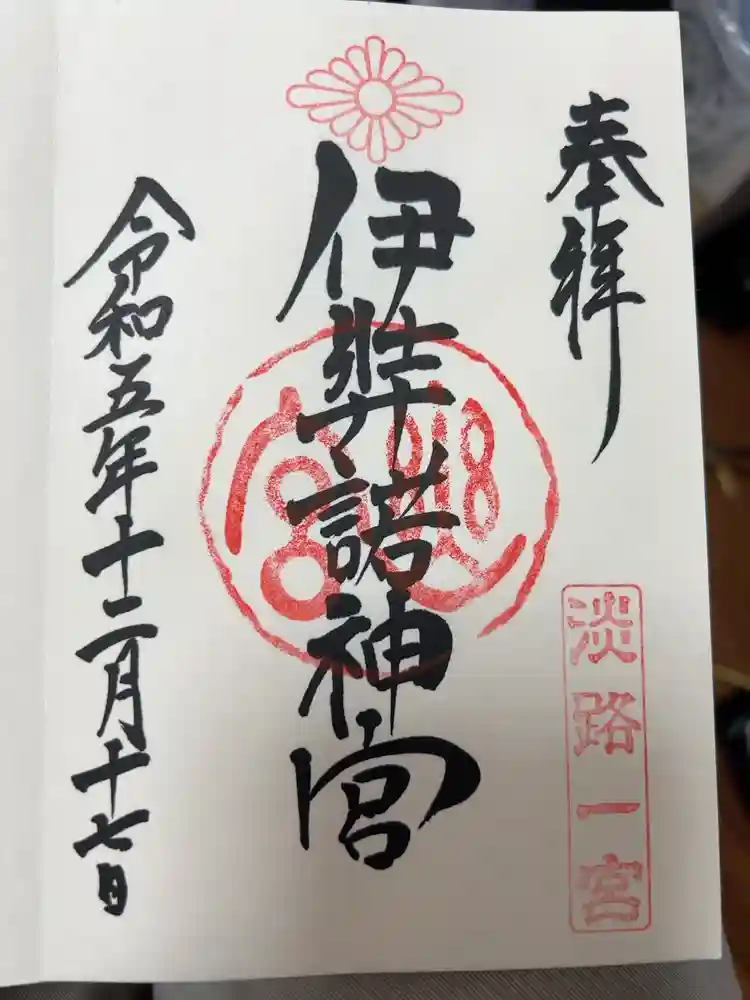 奉拝
淡路一宮
伊弉諾神宮
令和五年十二月十七日